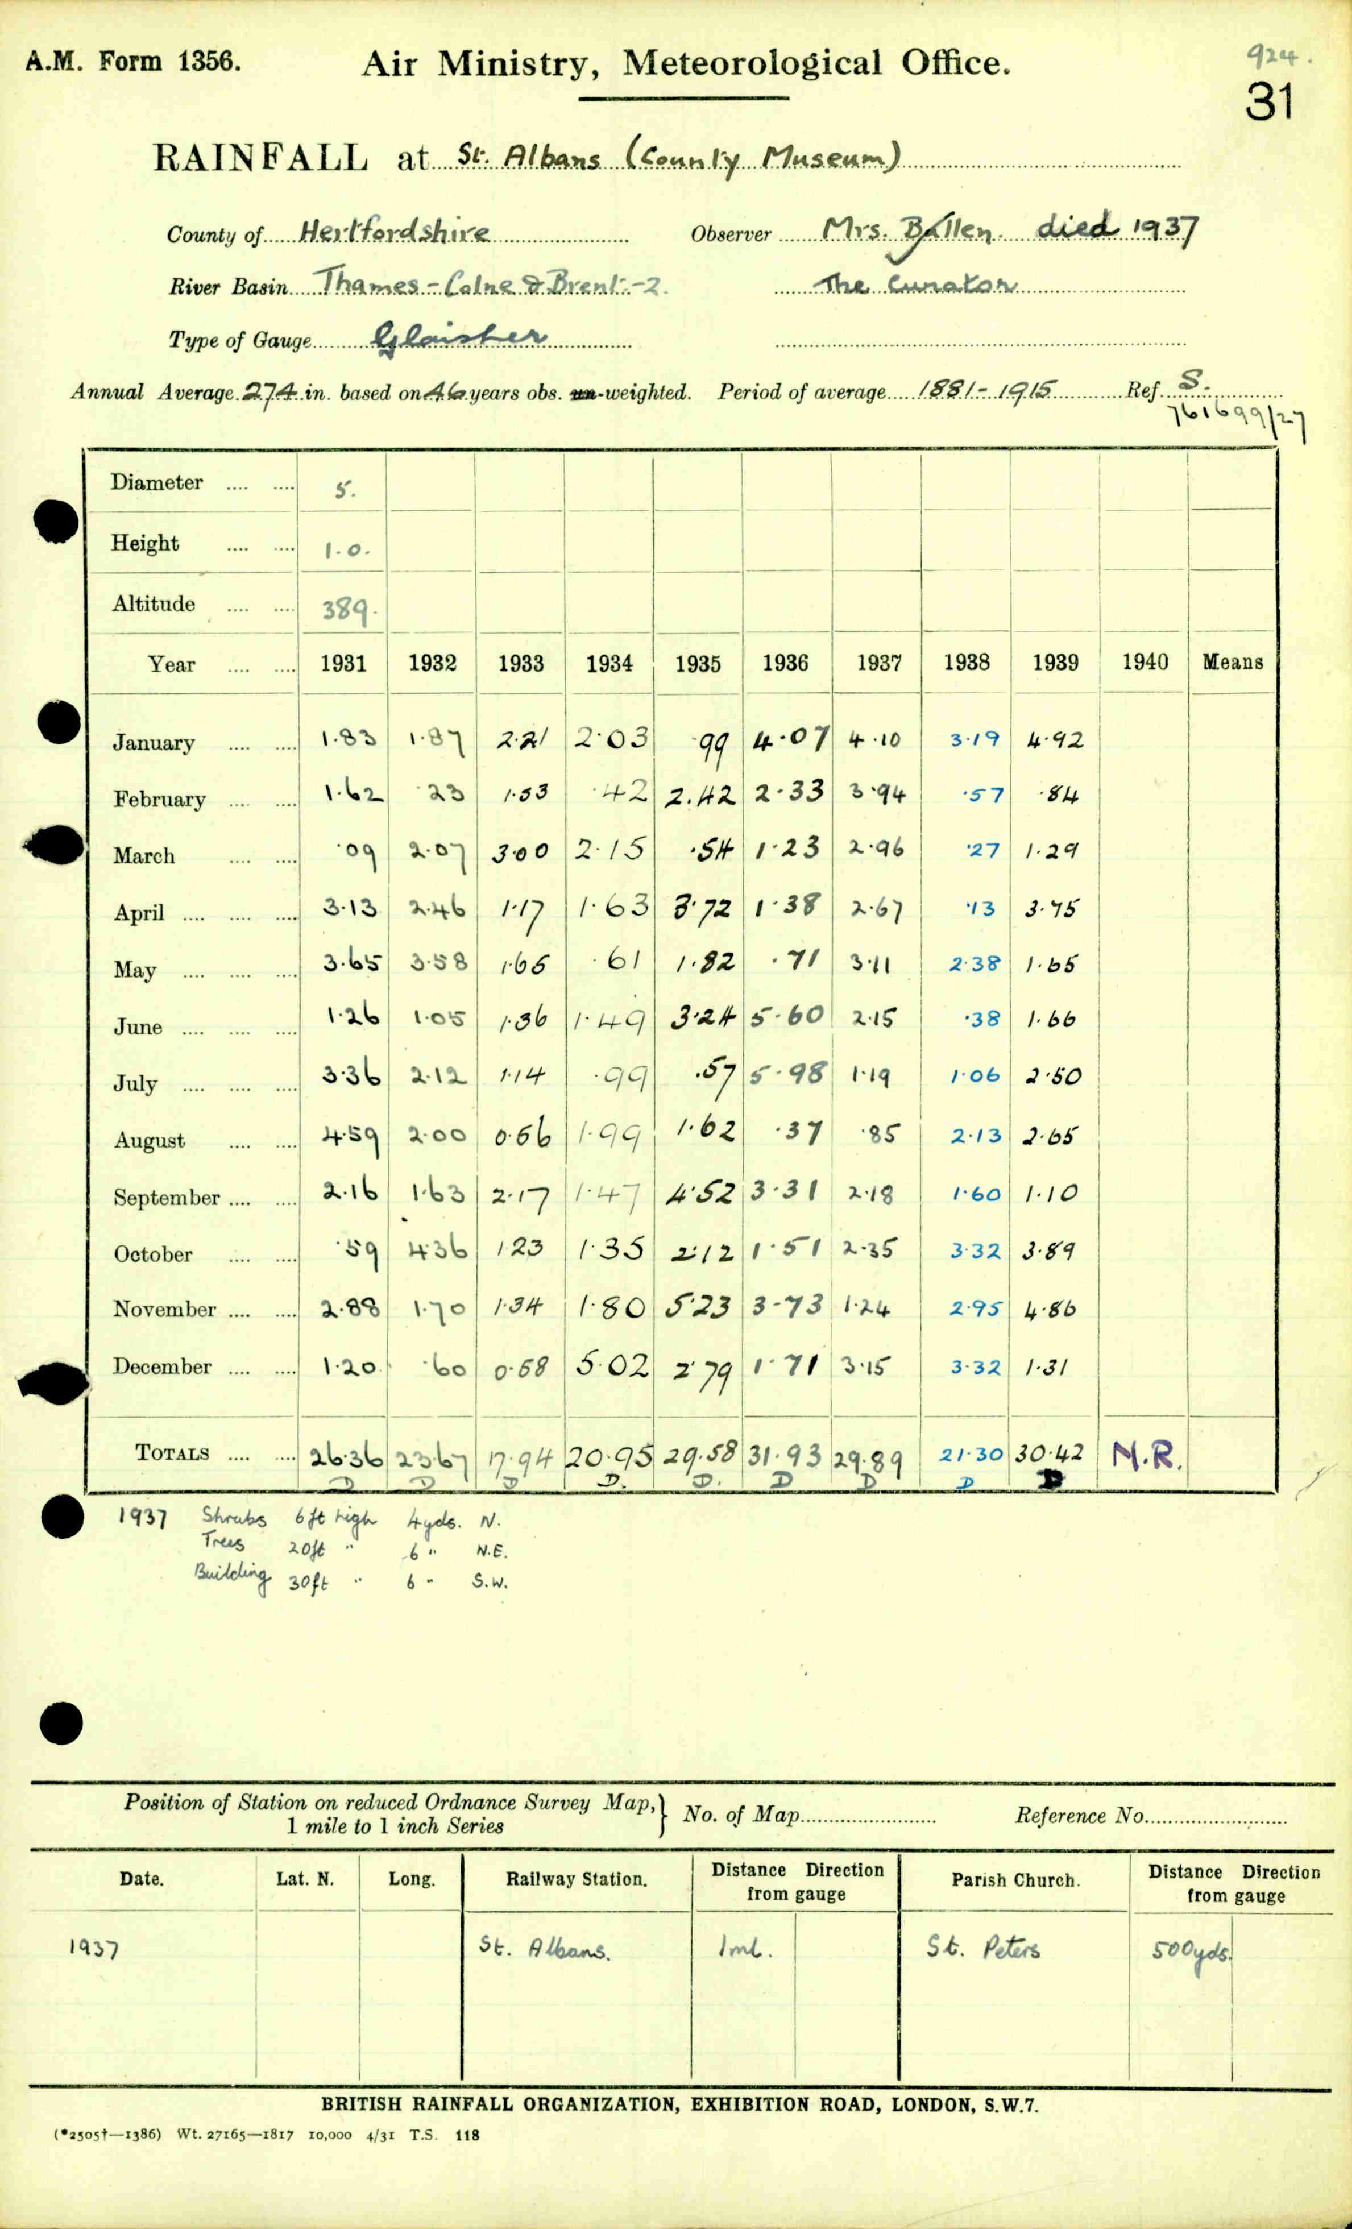 A.M. Form 1356.
Air Ministry, Meteorological Office.
924.
31
RAINFALL at St. Albans (County Museum)
County of Hertfordshire Observer Mrs. Bullen died 1937
River Basin Thames - Colne & Brent - 2. The Curator
Type of Gauge Glaisher
Annual Average 27.4 in. based on 46 years obs. un-weighted. Period of average 1881-1915 Ref. S.
761699/27
Diameter .... .... 5.
Height .... .... 1.0.
Altitude .... .... 389.
Year .... .... 1931 1932 1933 1934 1935 1936 1937 1938 1939 1940 Means
January .... .... 1.83 1.87 2.21 2.03 .99 4.07 4.10 3.19 4.92
February .... .... 1.62 .23 1.53 .42 2.42 2.33 3.94 .57 .84
March .... .... .09 2.07 3.00 2.15 .54 1.23 2.96 .27 1.29
April .... .... .... 3.13 2.46 1.17 1.63 3.72 1.38 2.67 .13 3.75
May .... .... .... 3.65 3.58 1.65 .61 1.82 .71 3.11 2.38 1.65
June .... .... .... 1.26 1.05 1.36 1.49 3.24 5.60 2.15 .38 1.66
July .... .... .... 3.36 2.12 1.14 .99 .57 5.98 1.19 1.06 2.50
August .... .... 4.59 2.00 0.56 1.99 1.62 .37 .85 2.13 2.65
September .... .... 2.16 1.63 2.17 1.47 4.52 3.31 2.18 1.60 1.10
October .... .... .59 4.36 1.23 1.35 2.12 1.51 2.35 3.32 3.89
November .... .... 2.88 1.70 1.34 1.80 5.23 3.73 1.24 2.95 4.86
December .... .... 1.20 .60 0.58 5.02 2.79 1.71 3.15 3.32 1.31
TOTALS .... .... 26.36 23.67 17.94 20.95 29.58 31.93 29.89 21.30 30.42 N.R.
D D D D. D. D D D D
1937 Shrubs 6ft high 4yds. N.
Trees 20ft " 6 " N.E.
Building 30ft " 6 " S.W.
Position of Station on reduced Ordnance Survey Map,} No. of Map Reference No.
1 mile to 1 inch Series
Date. Lat. N. Long. Railway Station. Distance Direction from gauge Parish Church. Distance Direction from gauge
1937 St. Albans. 1ml. St. Peters 500yds.
BRITISH RAINFALL ORGANIZATION, EXHIBITION ROAD, LONDON, S.W.7.
(*2505†—1386) Wt. 27165—1817 10,000 4/31 T.S. 118